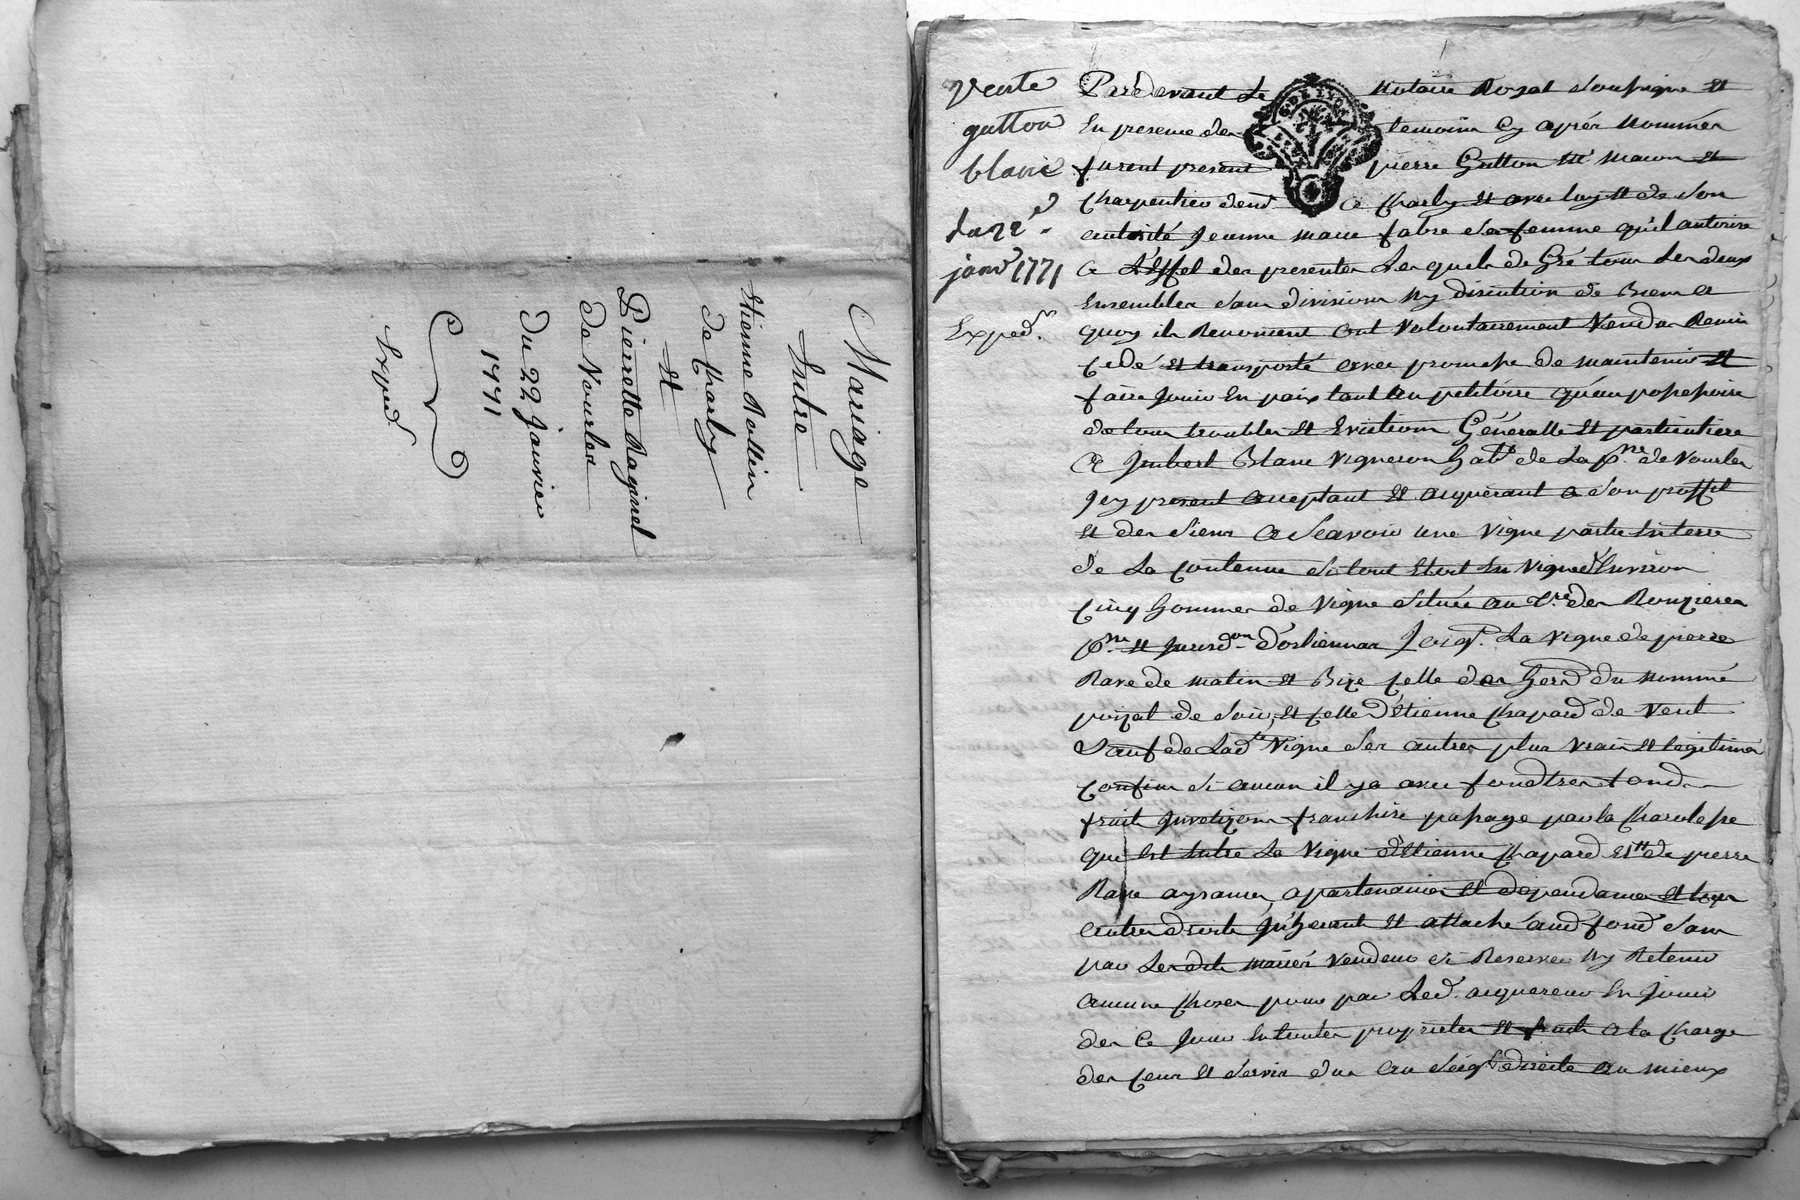 Mariage
Entre
Etienne Rollin
de Charly
Et
Pierrette Raginel
de Vourles
Du 22 Janvier
1771
Exped
Vente
gutton
blanc
du 22e
janvr 1771
Expedon
Pardevant Le Notaire Royal soussigné Et
En presence des temoins Cy aprés nommés
furent present pierre Gutton Me macon Et
Charpentier a Charly Et avec luy Et de son
autorité Jeanne marie fabre sa femme qu'il autorise
a L'Effet des presentes Lesquels de Gré tous Les deux
Ensembles sans division Ny discution de Biens a
quoy ils Renoncent ont volontairement Vendu Remis
Cedé Et transporté avec promesse de maintenir Et
faire Jouir En paix tant au petitoire qu'au possessoire
de tous troubles Et Evictions Généralle Et particuliere
a Imbert Blanc Vigneron habt de La psse de Vourles
Icy present acceptant Et acquerant a son proffit
Et des siens a scavoir une Vigne partie En terre
de La Contenue si tout Etoit En Vigne d'Environ
Cinq hommes de Vigne située au tre des Ronzieres
psse Et Jurisdon d'orlienas Joigt La vigne de pierre
Rave de matin Et Bize Celle des hers du nommé
poizat de soir, Et Celle d'Etienne Chapard de Vent
Sauf de Lade Vigne ses autres plus vrais Et legitimes
Confins si aucun il y a avec fond tres fond
fruit Servitudes franchise passage par la Charolesse
qui Est Entre La Vigne d'Etienne Chapard Et de pierre
Rave aysances, apartenances Et dependances Et tous
autres droits Inherent Et attaché aud fond sans
par Lesdits mariés vendeurs si Reserver Ny Retenir
aucune Choses pour par Led. acquereur En Jouir
des Ce Jour En toutes proprietes Et fruits a la Charge
des Cens Et servis due au seigr direct au mieux